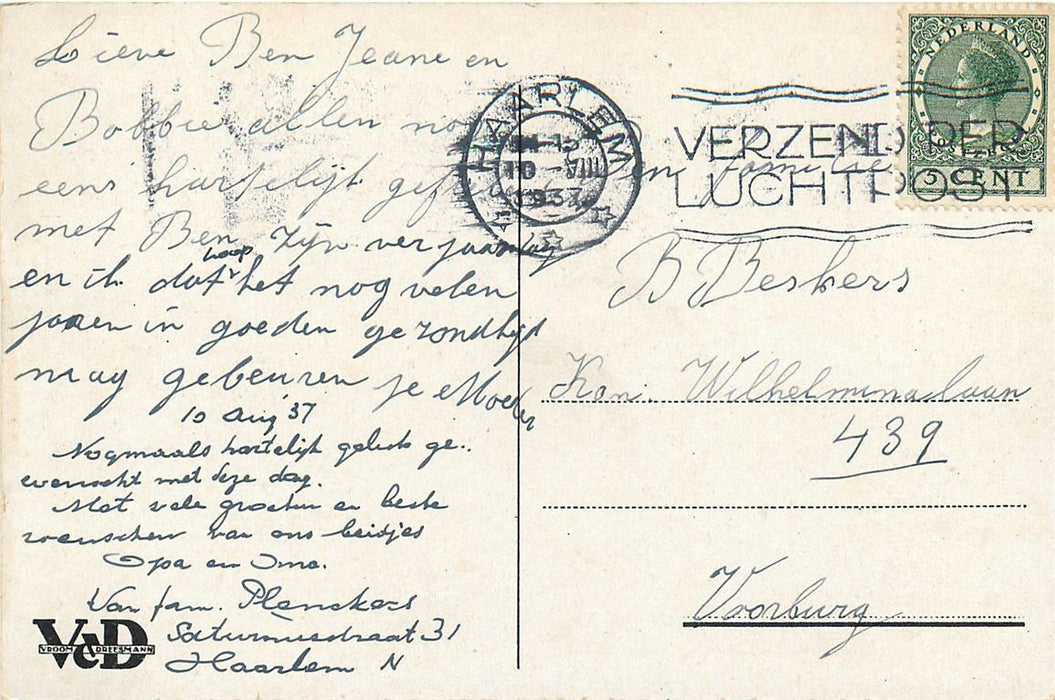 Lieve Ben Jeane en
Bobbie allen nog
eens hartelijk gef en familie
met Ben zijn verjaardag
en ik hoop dat het nog velen
jaren in goeden gezondhijt
mag gebeuren je Moeder
10 Aug '37
Nogmaals hartelijk geluk ge-
wenscht met deze dag.
Met vele groeten en beste
wenschen van ons beidjes
Opa en Oma.
Van fam. Plenckers
Saturnusstraat 31
Haarlem N
V&D
VROOM & DREESMANN
HAARLEM
10 VIII
1937
VERZEND PER
LUCHTPOST
NEDERLAND
5 CENT
B Beskers
Kon. Wilhelminalaan
439
Voorburg